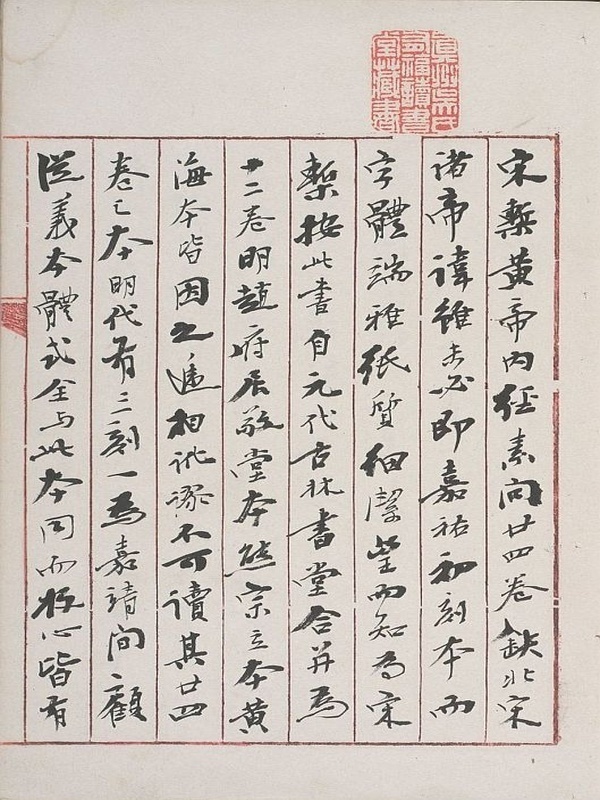 真州吳氏
有福讀書
堂藏書
宋槧黃帝內經素問廿四卷缺北宋
諸帝諱雖未必即嘉祐初刻本而
字體端雅紙質細潔望而知為宋
槧按此書自元代古林書堂合并為
十二卷明趙府居敬堂本熊宗立本黃
海本皆因之遞相訛謬不可讀其廿四
卷之本明代有二刻一為嘉靖間顧
從義本體式全与此本同而板心皆有